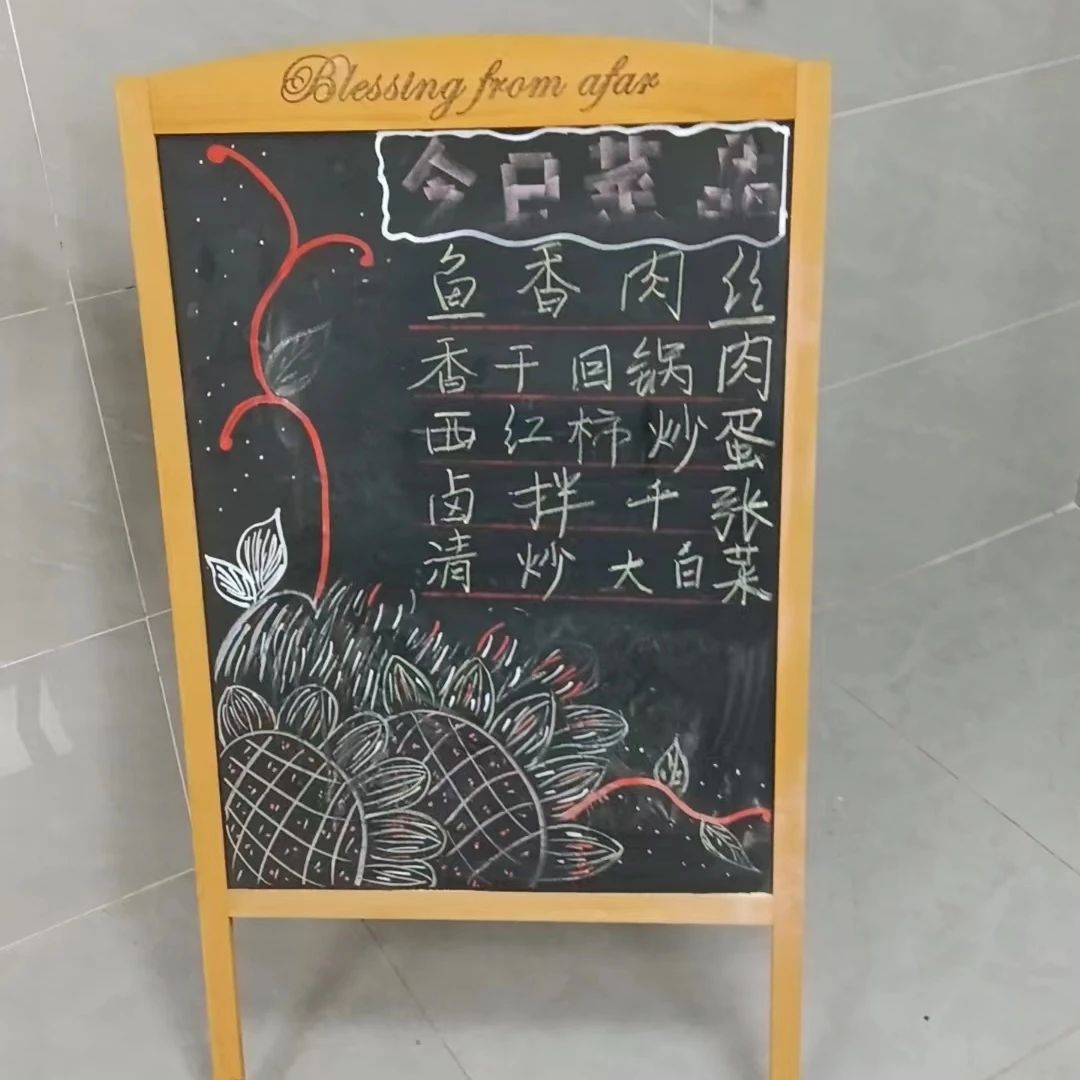 Blessing from afar
今日菜品
鱼香肉丝
香干回锅肉
西红柿炒蛋
卤拌千张
清炒大白菜